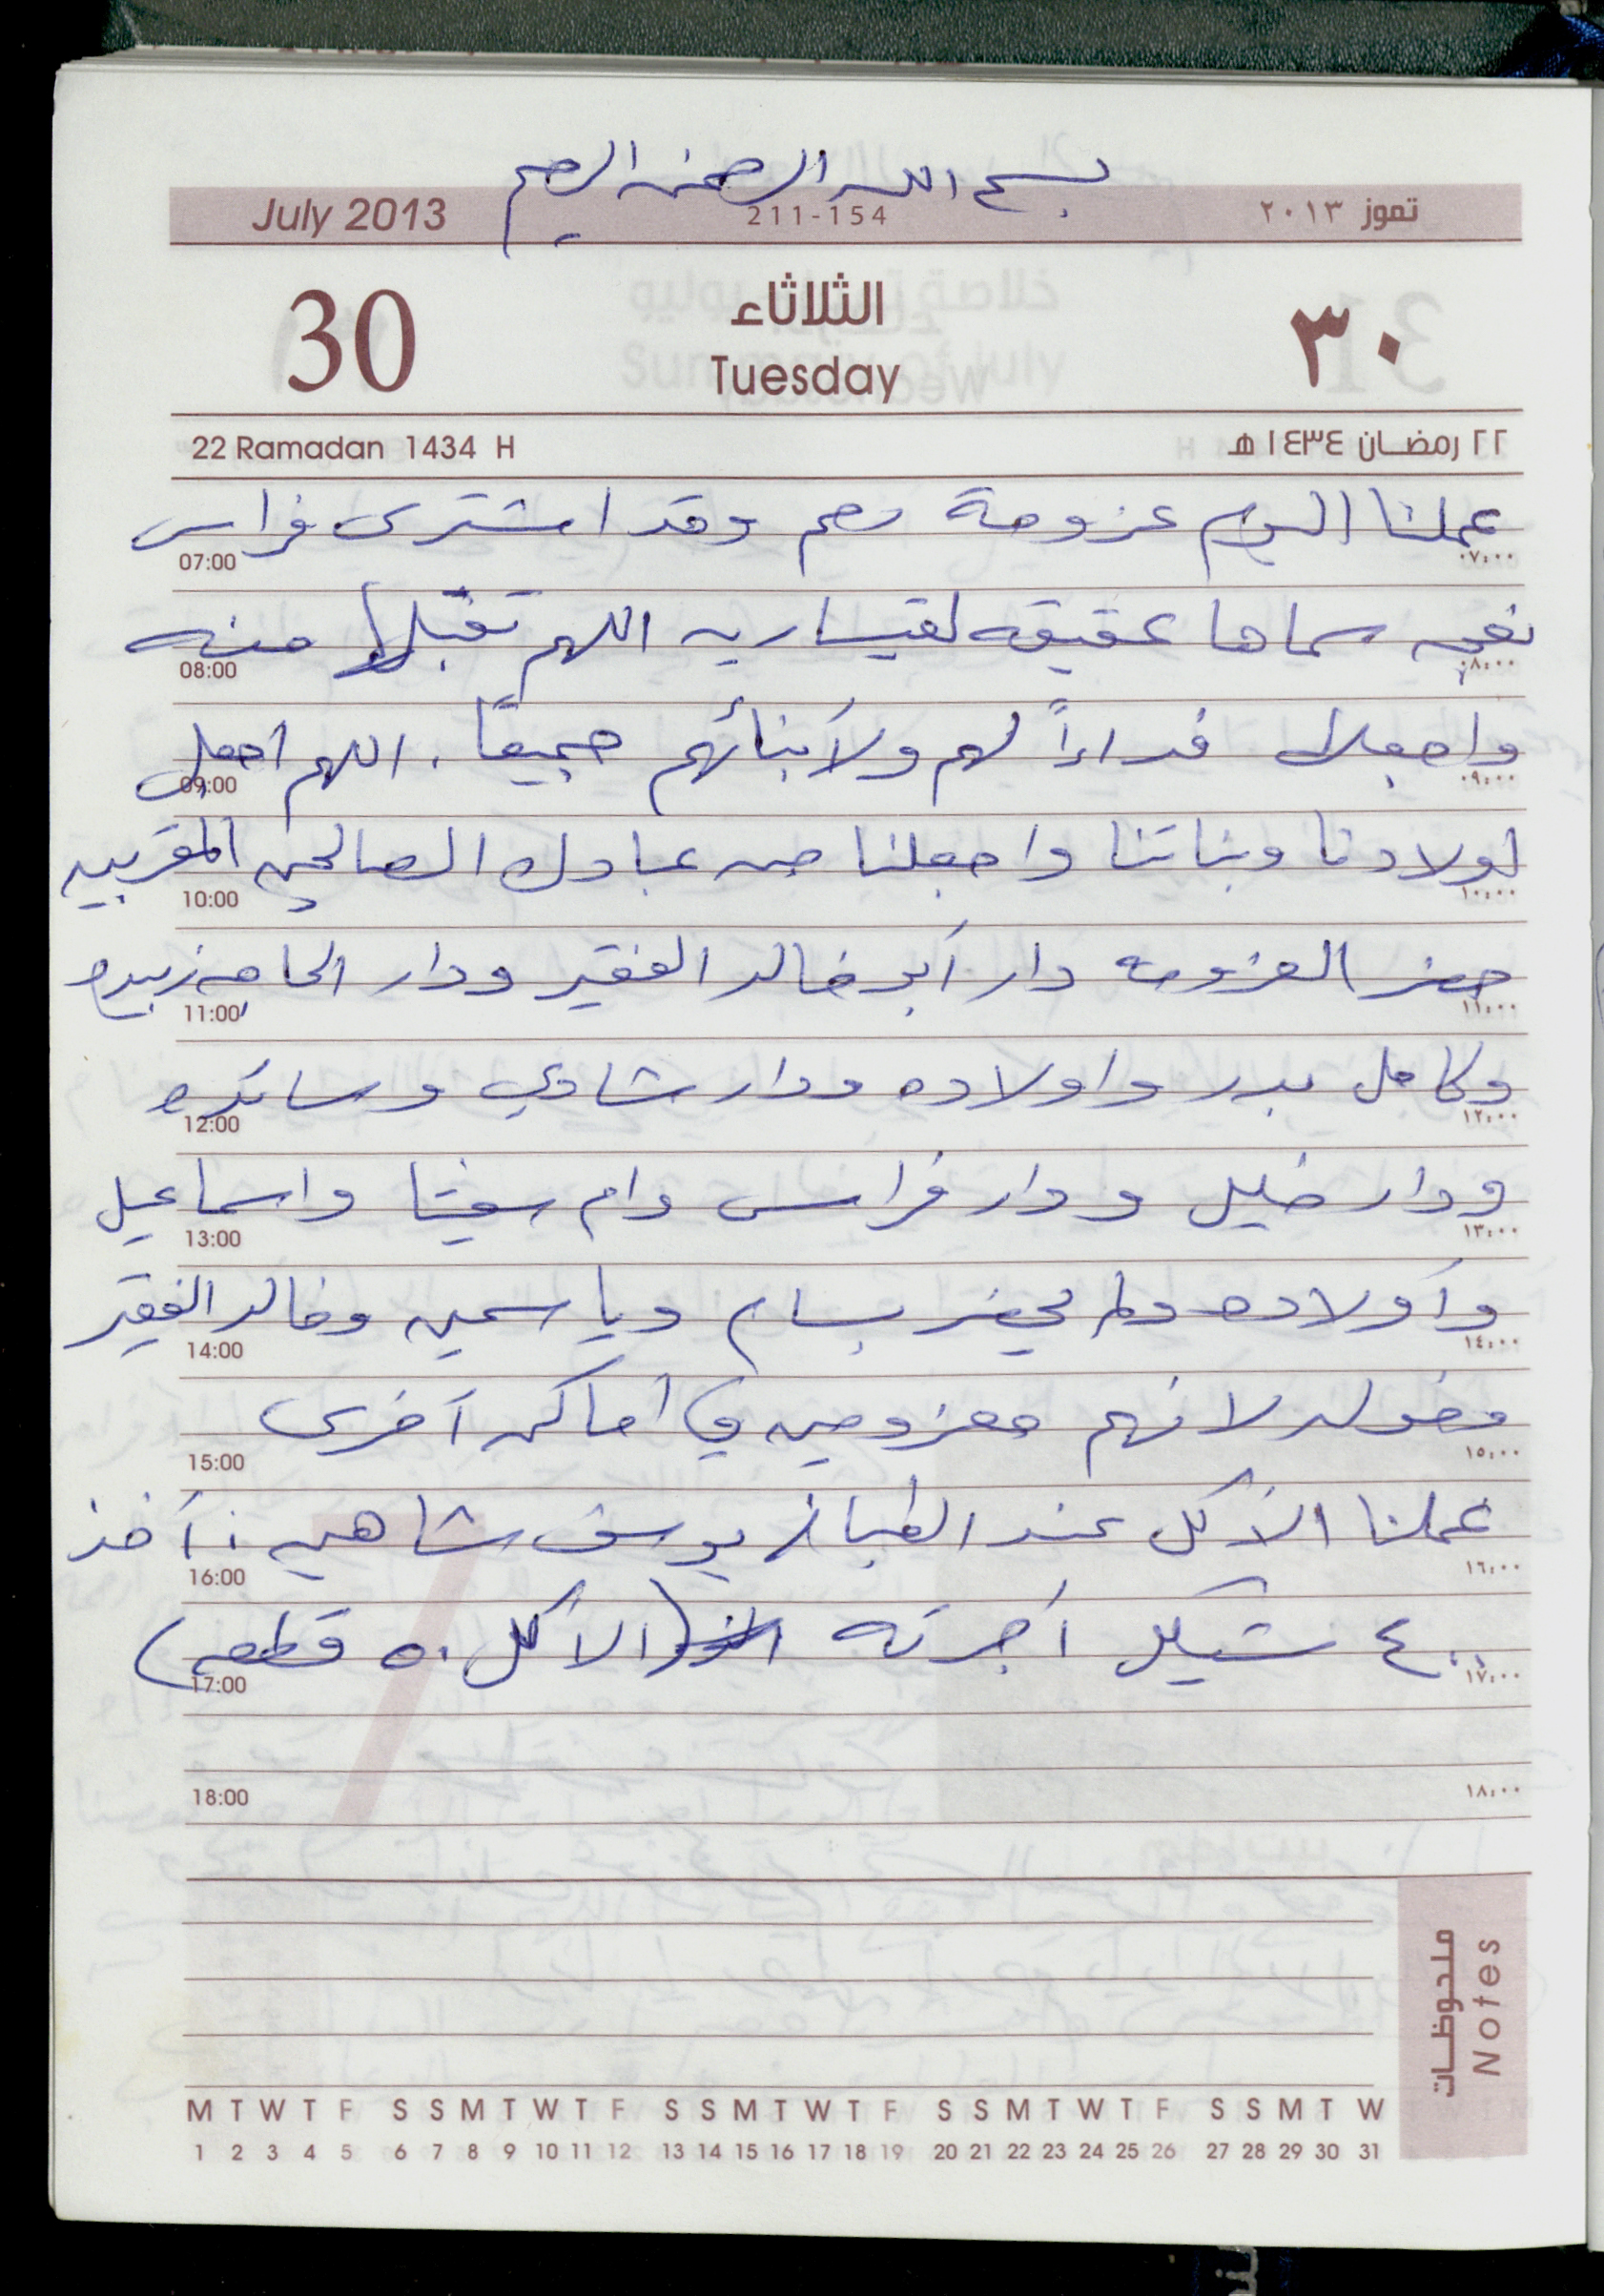 بسم الله الرحمن الرحيم
July 2013 211-154 تموز ٢٠١٣
30 الثلاثاء ٣٠
Tuesday
22 Ramadan 1434 H ٢٢ رمضان ١٤٣٤ هـ
عملنا اليوم عزومة رحم وقد اشترى فراس
07:00 ٠٧:٠٠
نعجه سماها عقيقه لقيساريه اللهم تقبلها منه
08:00 ٠٨:٠٠
واجعلها فداءاً لهم ولأبنائهم جميعاً . اللهم اجعل
09:00 ٠٩:٠٠
اولادنا وبناتنا واجعلنا من عبادك الصالحين المقربين
10:00 ١٠:٠٠
حضر العزومه دار أبو خالد الفقير ودار الحاجه زبيده
11:00 ١١:٠٠
وكامل بدر واولاده ودار شادي وسائده
12:00 ١٢:٠٠
ودار خليل ودار فراس وام واسماعيل
13:00 ١٣:٠٠
وأولاده ولم يحضر بسام وياسمين وخالد الفقير
14:00 ١٤:٠٠
وخولد لانهم معزومين في أماكن أخرى
15:00 ١٥:٠٠
عملنا الأكل عند الطباخ يوسف شاهين : أخذ
16:00 ١٦:٠٠
٤٠٠ شيكل أجرته (الأكل ٥٠ قطعه)
17:00 ١٧:٠٠
18:00 ١٨:٠٠
ملحوظات
Notes
M T W T F S S M T W T F S S M T W T F S S M T W T F S S M T W
1 2 3 4 5 6 7 8 9 10 11 12 13 14 15 16 17 18 19 20 21 22 23 24 25 26 27 28 29 30 31